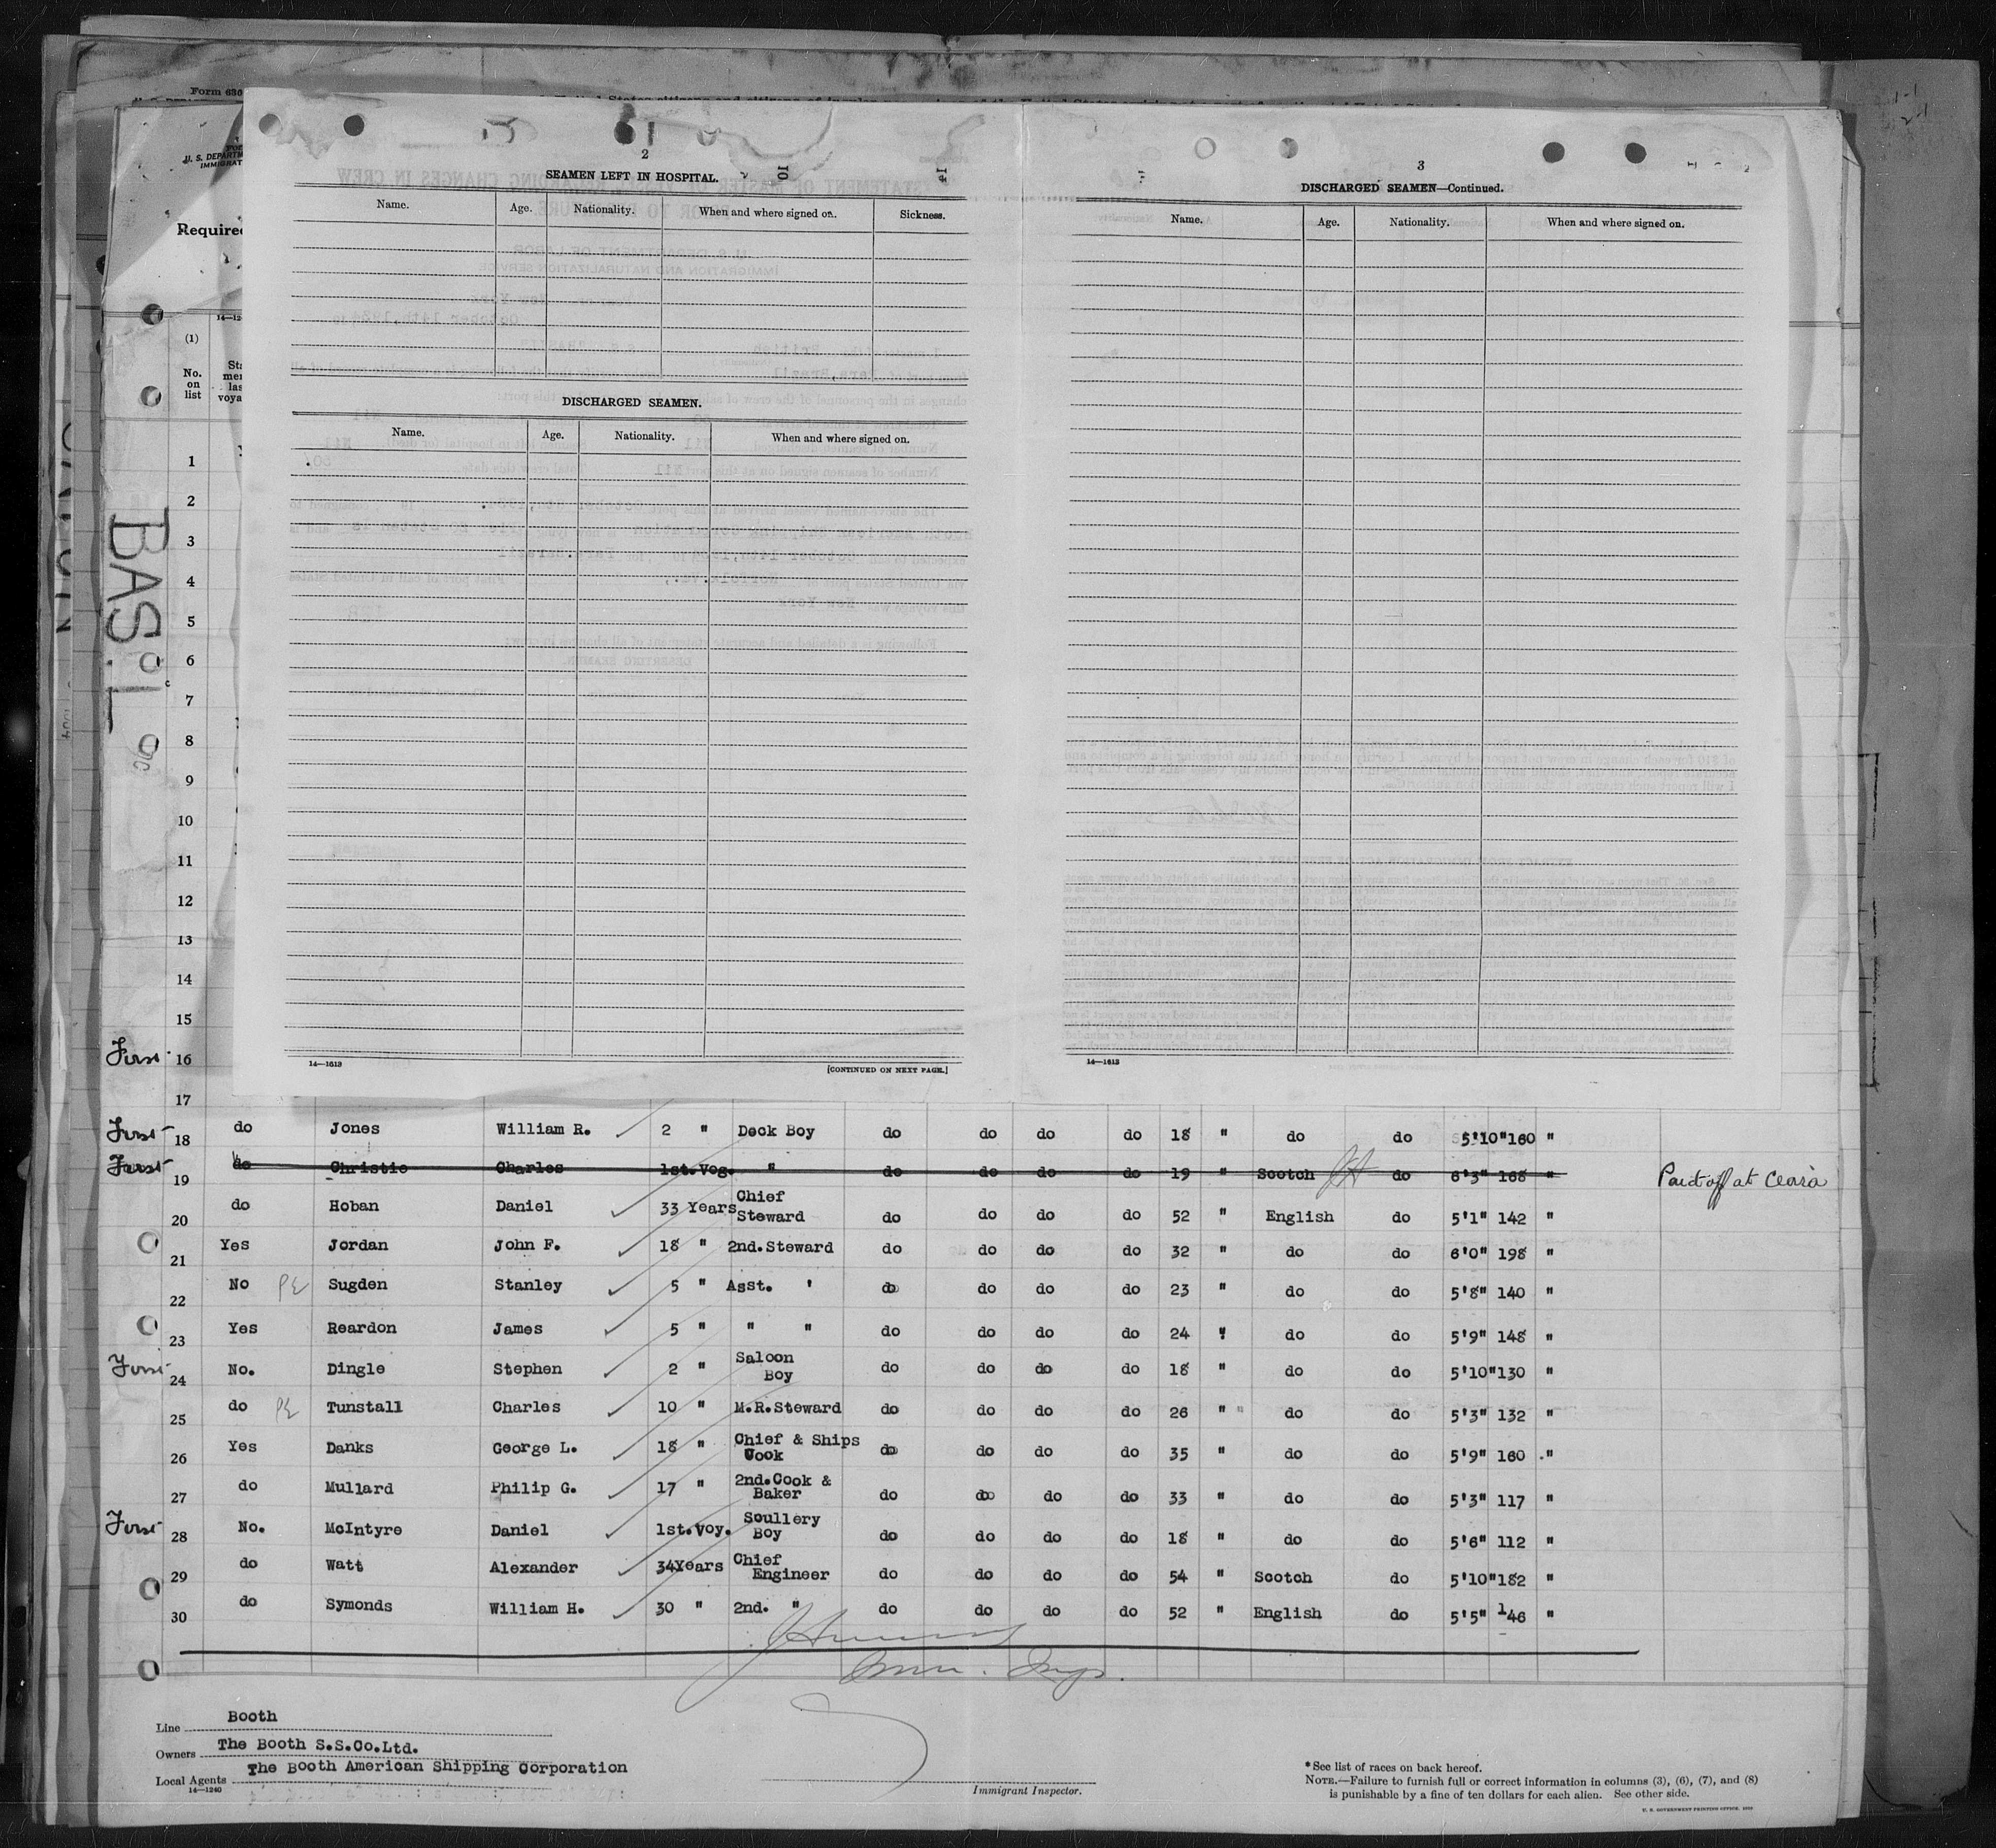 Form 630
U. S. DEPARTM
IMMIGRAT
Required
14—12
(1)
No.
on
list
BASIL
2
SEAMEN LEFT IN HOSPITAL.
Name. Age. Nationality. When and where signed on. Sickness.
DISCHARGED SEAMEN.
Name. Age. Nationality. When and where signed on.
14—1613
[CONTINUED ON NEXT PAGE.]
3
DISCHARGED SEAMEN—Continued.
Name. Age. Nationality. When and where signed on.
14—1613
1
2
3
4
5
6
7
8
9
10
11
12
13
14
15
First 16
17
First 18 do Jones William R. 2 " Deck Boy do do do do 18 " do do 5'10" 160 "
First 19 do Christie Charles 1st.Voy. " do do do do 19 " Scotch do 6'3" 168 " Paid off at Ceará
20 do Hoban Daniel 33 Years Chief Steward do do do do 52 " English do 5'1" 142 "
21 Yes Jordan John F. 18 " 2nd.Steward do do do do 32 " do do 6'0" 198 "
22 No PE Sugden Stanley 5 " Asst. ' do do do do 23 " do do 5'8" 140 "
23 Yes Reardon James 5 " " " do do do do 24 " do do 5'9" 148 "
First 24 No. Dingle Stephen 2 " Saloon Boy do do do do 18 " do do 5'10" 130 "
25 do PE Tunstall Charles 10 " M.R.Steward do do do do 26 " do do 5'3" 132 "
26 Yes Danks George L. 18 " Chief & Ships Cook do do do do 35 " do do 5'9" 160 "
27 do Mullard Philip G. 17 " 2nd.Cook & Baker do do do do 33 " do do 5'3" 117 "
First 28 No. McIntyre Daniel 1st.Voy. Scullery Boy do do do do 18 " do do 5'6" 112 "
29 do Watt Alexander 34Years Chief Engineer do do do do 54 " Scotch do 5'10" 182 "
30 do Symonds William H. 30 " 2nd. " do do do do 52 " English do 5'5" 146 "
Imm. Insp.
Line Booth
Owners The Booth S.S.Co.Ltd.
Local Agents The Booth American Shipping Corporation
14—1240
Immigrant Inspector.
* See list of races on back hereof.
NOTE.—Failure to furnish full or correct information in columns (3), (6), (7), and (8)
is punishable by a fine of ten dollars for each alien. See other side.
U. S. GOVERNMENT PRINTING OFFICE